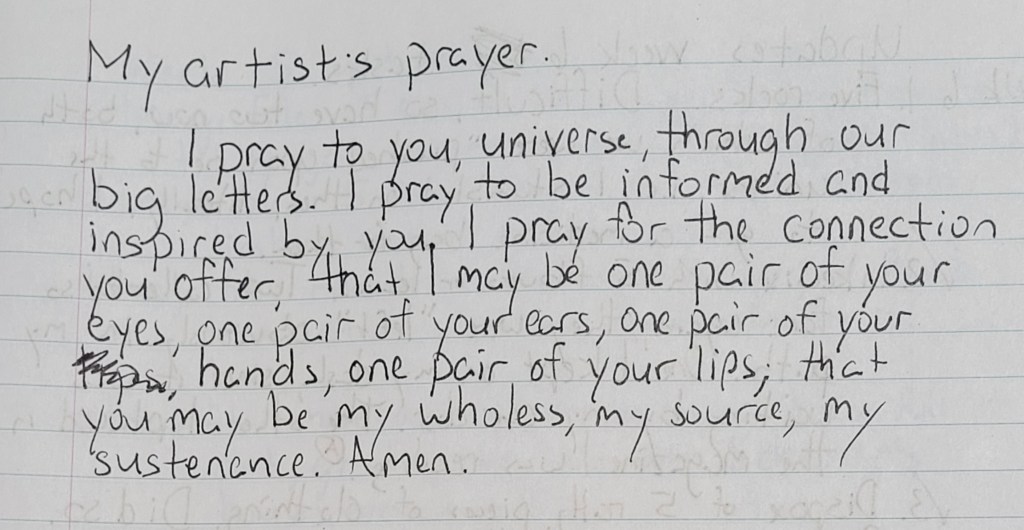 My artist's prayer.
I pray to you, universe, through our
big letters. I pray to be informed and
inspired by you. I pray for the connection
you offer, that I may be one pair of your
eyes, one pair of your ears, one pair of your
hands, one pair of your lips; that
you may be my wholess, my source, my
sustenance. Amen.